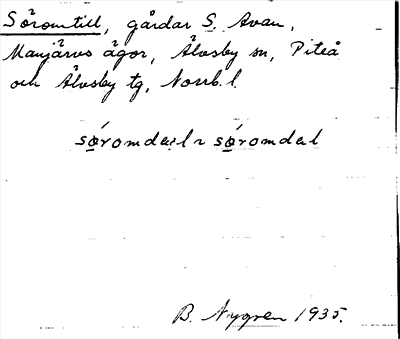 Söromtill, gårdar S. Avan,
Manjärvs ägor, Älvsby sn, Piteå
och Älvsby tg, Norrb. l.
söromda:l ~ söromdal
B. Nygren 1935.